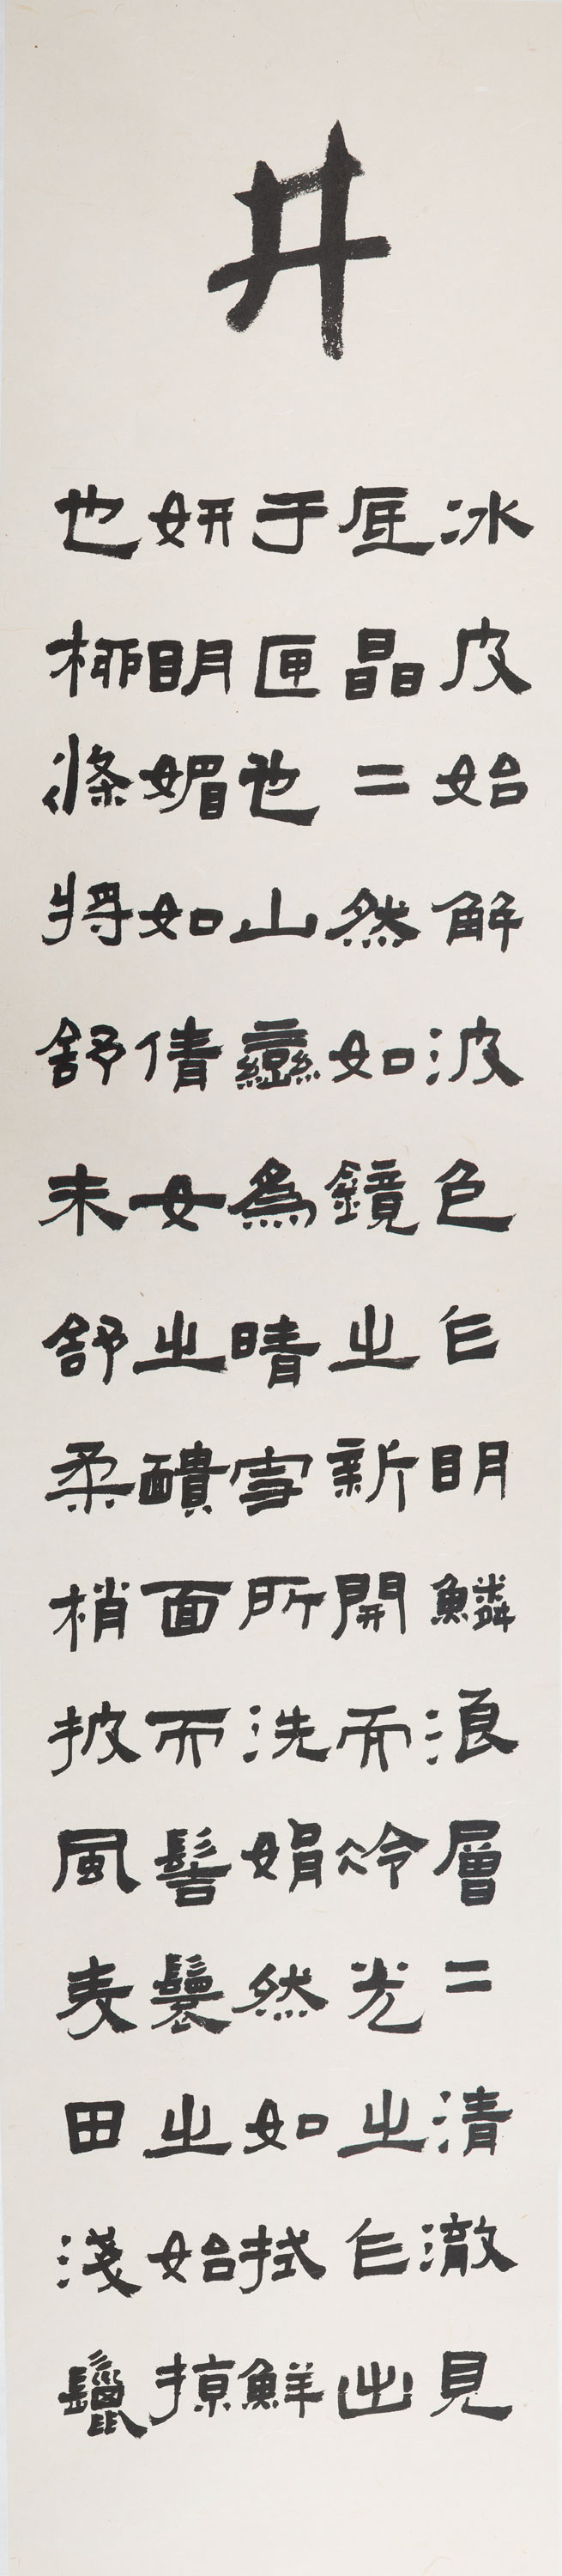 井
冰皮始解波色乍明鱗浪層二清澈見
底晶二然如鏡之新開而冷光之乍出
于匣也山巒為晴雪所洗娟然如拭鮮
妍明媚如倩女之靧面而髻鬟之始掠
也柳條將舒未舒柔梢披風麦田淺鬣